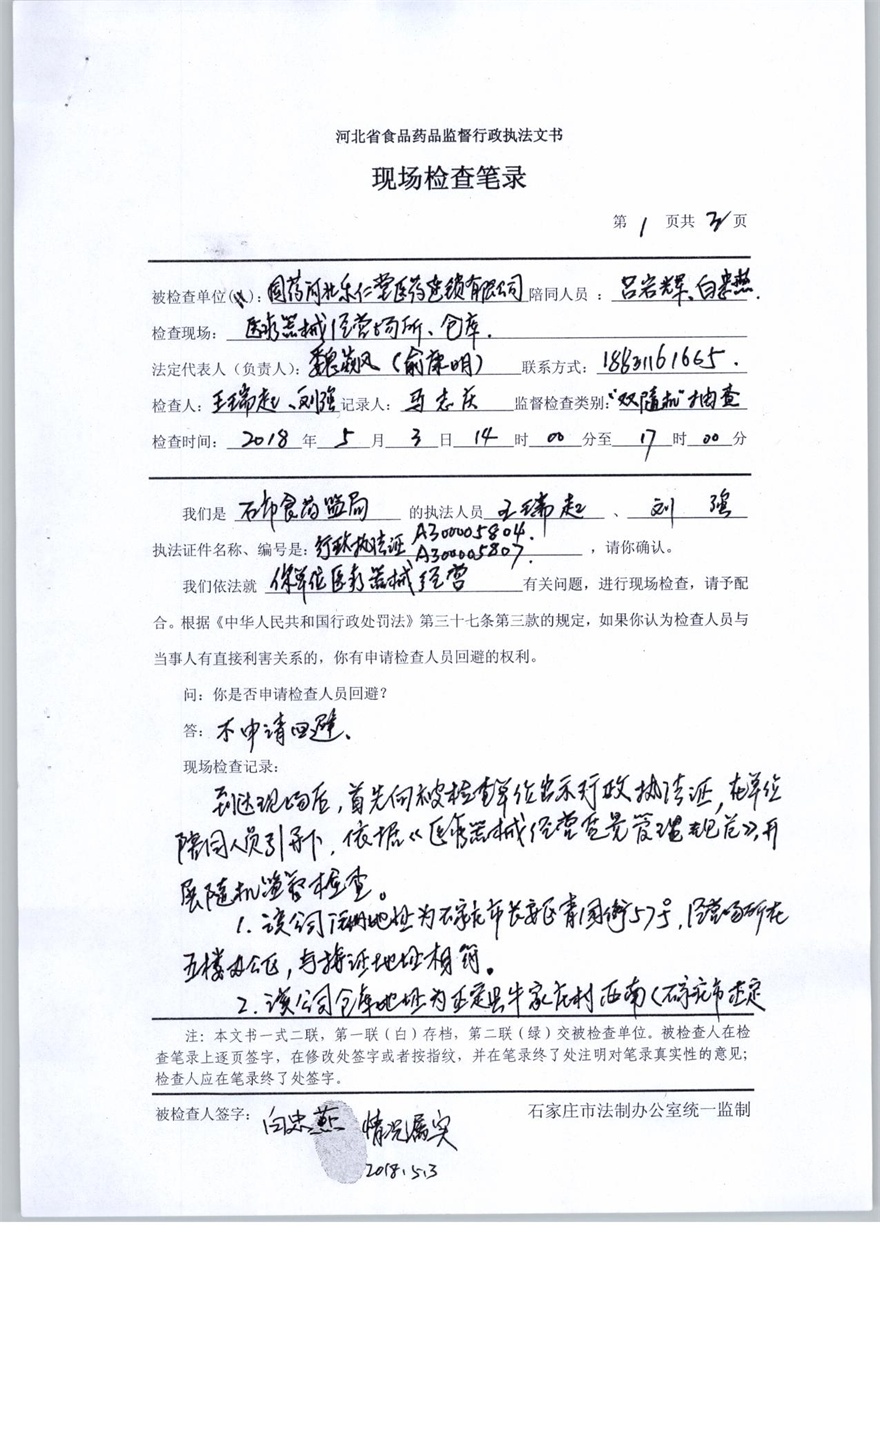 河北省食品药品监督行政执法文书
现场检查笔录
第 1 页共 3 页
被检查单位(人)：国药河北乐仁堂医药连锁有限公司 陪同人员：吕岩辉、白忠燕.
检查现场：医疗器械经营场所、仓库.
法定代表人（负责人）：魏飙（俞康明） 联系方式：18631161665.
检查人：王瑞起、刘强 记录人：马志庆 监督检查类别："双随机"抽查
检查时间：2018 年 5 月 3 日 14 时 00 分至 17 时 00 分
我们是 石市食药监局 的执法人员 王瑞起 、 刘强
执法证件名称、编号是：行政执法证 A300005804. A300005807. ，请你确认。
我们依法就 你单位医疗器械经营 有关问题，进行现场检查，请予配
合。根据《中华人民共和国行政处罚法》第三十七条第三款的规定，如果你认为检查人员与
当事人有直接利害关系的，你有申请检查人员回避的权利。
问：你是否申请检查人员回避？
答：不申请回避、
现场检查记录：
到达现场后，首先向被检查单位出示行政执法证，在单位
陪同人员引导下，依据《医疗器械经营质量管理规范》，开
展随机监督检查。
1. 该公司注册地址为石家庄市长安区青园街57号，经营场所在
五楼办公区，与持证地址相符。
2. 该公司仓库地址为正定县牛家庄村西南（石家庄市正定
注：本文书一式二联，第一联（白）存档，第二联（绿）交被检查单位。被检查人在检
查笔录上逐页签字，在修改处签字或者按指纹，并在笔录终了处注明对笔录真实性的意见；
检查人应在笔录终了处签字。
被检查人签字：白忠燕 情况属实 石家庄市法制办公室统一监制
2018.5.3